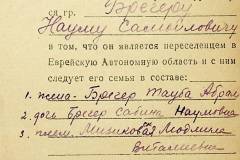 ся. гр. Брегеру
Науму Самойловичу
в том, что он является переселенцем в
Еврейскую Автономную область и с ним
следует его семья в составе:
1. жена - Брегер Тауба Абрам
2. дочь Брегер Сабина Наумовна
3. плем. Мизиковая Людмила
Виталиевна